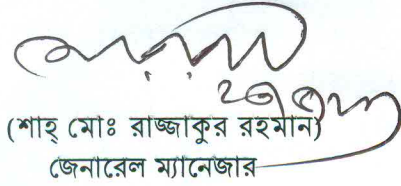 (শাহ্ মোঃ রাজ্জাকুর রহমান)
জেনারেল ম্যানেজার